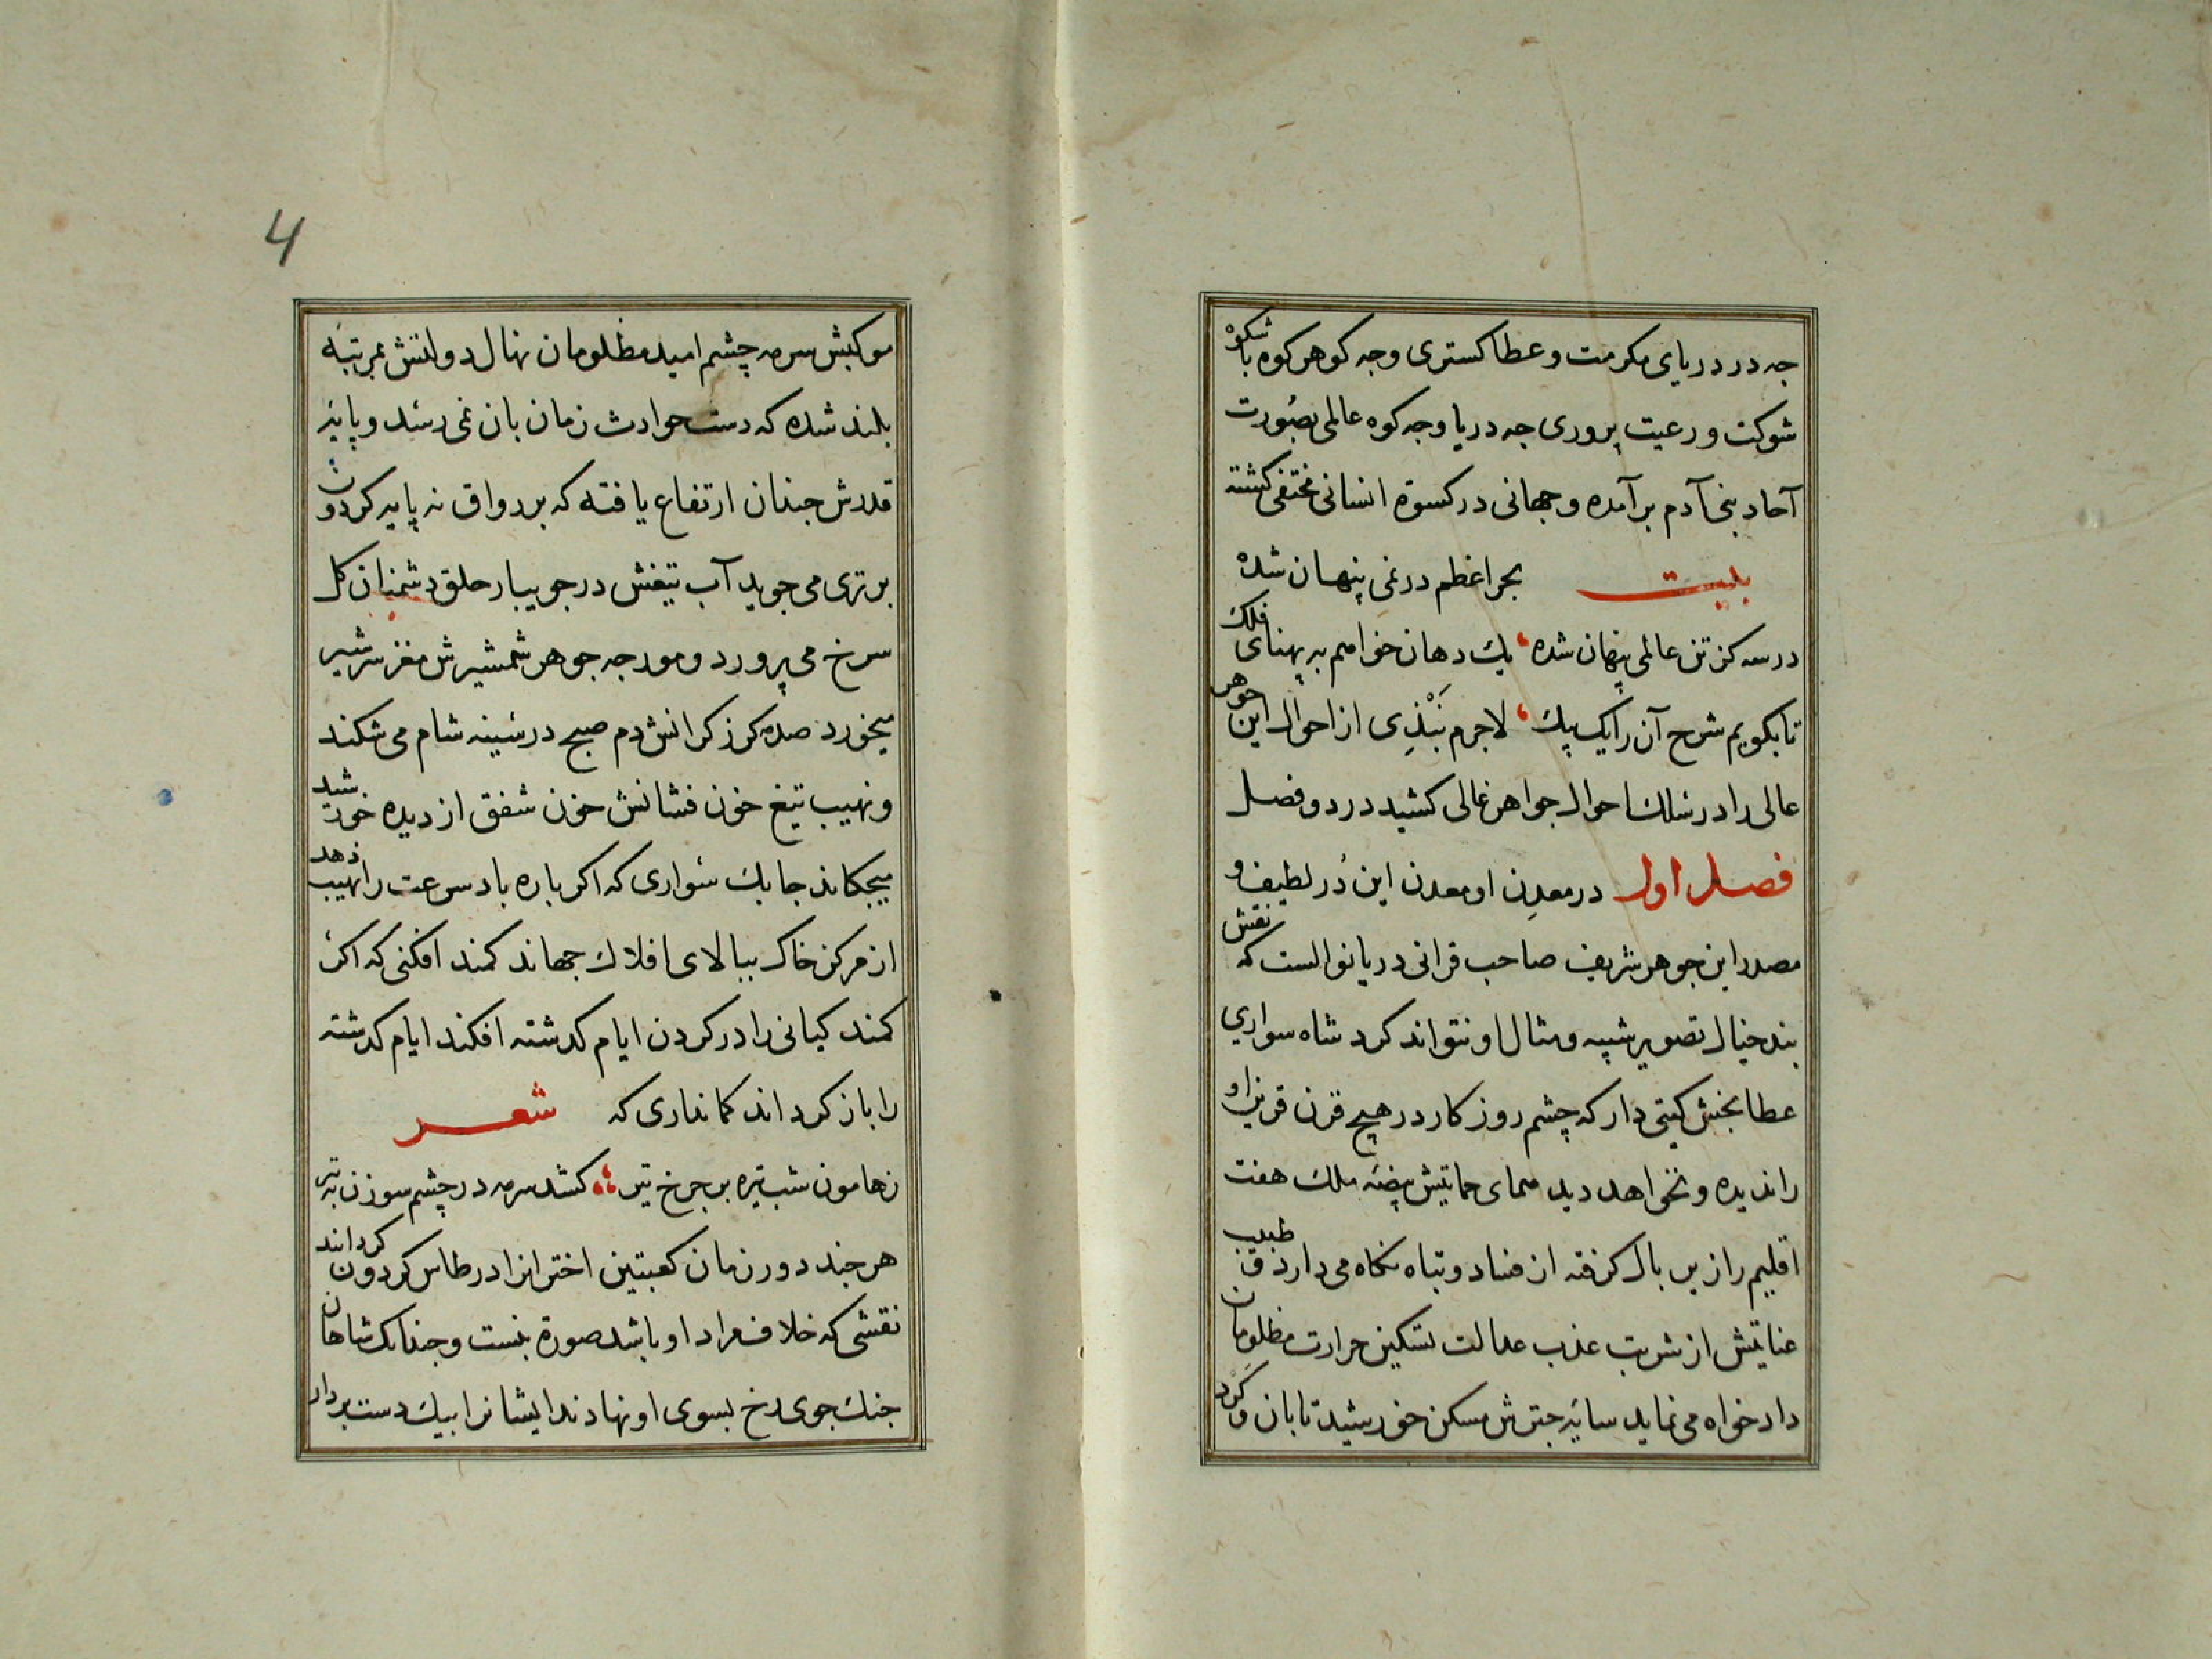 جه در دریای مکرمت و عطا کستری وجه کوهر کوه با شکوه
شوکت و رعیت پروری جه دریا وجه کوه عالمی بصورت
آحاد بنی آدم برآمده وجهانی در کسوة انسانی مختفی کشته
بیت بحر اعظم در نمی پنهان شده
در سه کز تن عالمی پنهان شده یك دهان خواهم به پهنای فلك
تا بکویم شرح آن را یک بیك لاجرم نبذی از احوال این جوهر
عالی را در سلك احوال جواهر غالی کشید در دو فصل
فصل اول در معدن او معدن این در لطیف و
مصدر این جوهر شریف صاحب قرانی دریا نوالست که نقش
بند خیال تصویر شبیه و مثال او نتواند کرد شاه سواری
عطا بخش کیتی دار که چشم روزکار در هیچ قرن قرین او
را ندیده و نخواهد دید همای حمایتش بیضهٔ ملك هفت
اقلیم را زیر بال کرفته از فساد و تباه نکاه می دارد و طبیب
عنایتش از شربت عذب عدالت تسکین حرارت مظلومان
دادخواه می نماید سایهٔ جترش مسکن خورشید تابان و کرد
4
موکبش سرمه چشم امید مظلومان نهال دولتش بمرتبه
بلند شده که دست حوادث زمان بان نمی رسد و پایهٔ
قدرش جندان ارتفاع یافته که بر رواق نه پایه کردون
برتری می جوید آب تیغش در جویبار حلق دشمنان کل
سرخ می پرورد و مورجه جوهر شمشیرش مغز سر شیر
میخورد صدمه کرز کرانش دم صبح در سینه شام می شکند
و نهیب تیغ خون فشانش خون شفق از دیده خورشید
میجکاند جابك سواری که اکر باره باد سرعت را نهیب دهد
از مرکز خاك ببالای افلاك جهاند کمند افکنی که اکر
کمند کیانی را در کردن ایام کدشته افکند ایام کدشته
را باز کرداند کمانداری که شعر
زهامون شب تیره بر جرخ تیر کشد سرمه در چشم سوزن به تیر
هر جند دور زمان کعبتین اخترانرا در طاس کردون کرداند
نقشی که خلاف مراد او باشد صورة نبست و جندانک شاهان
جنك جوی رخ بسوی او نهادند ایشانرا بیك دست بردار